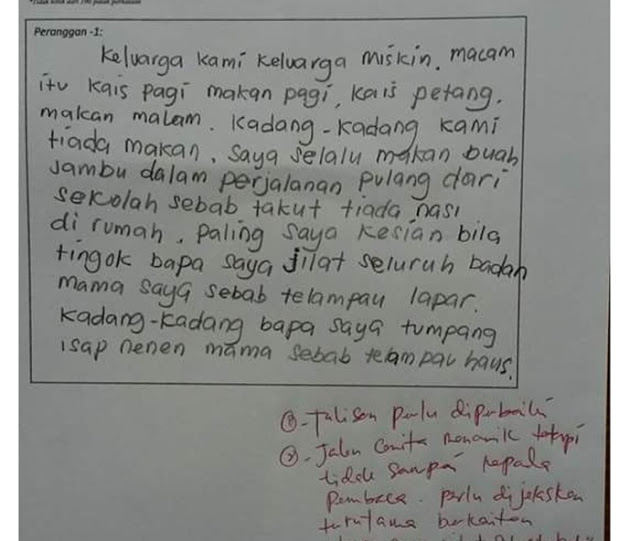 Peranggan -1:
Keluarga kami keluarga miskin. macam
itu kais pagi makan pagi, kais petang.
makan malam. Kadang-kadang kami
tiada makan. Saya selalu makan buah
jambu dalam perjalanan pulang dari
sekolah sebab takut tiada nasi
di rumah. Paling saya kesian bila
tingok bapa saya jilat seluruh badan
mama saya sebab telampau lapar.
Kadang-kadang bapa saya tumpang
isap nenen mama sebab telampau haus.
①-Tulisan perlu diperbaiki
②-Jalan cerita menarik tetapi
tidak sampai kepada
pembaca. perlu dijelaskan
terutama berkaitan